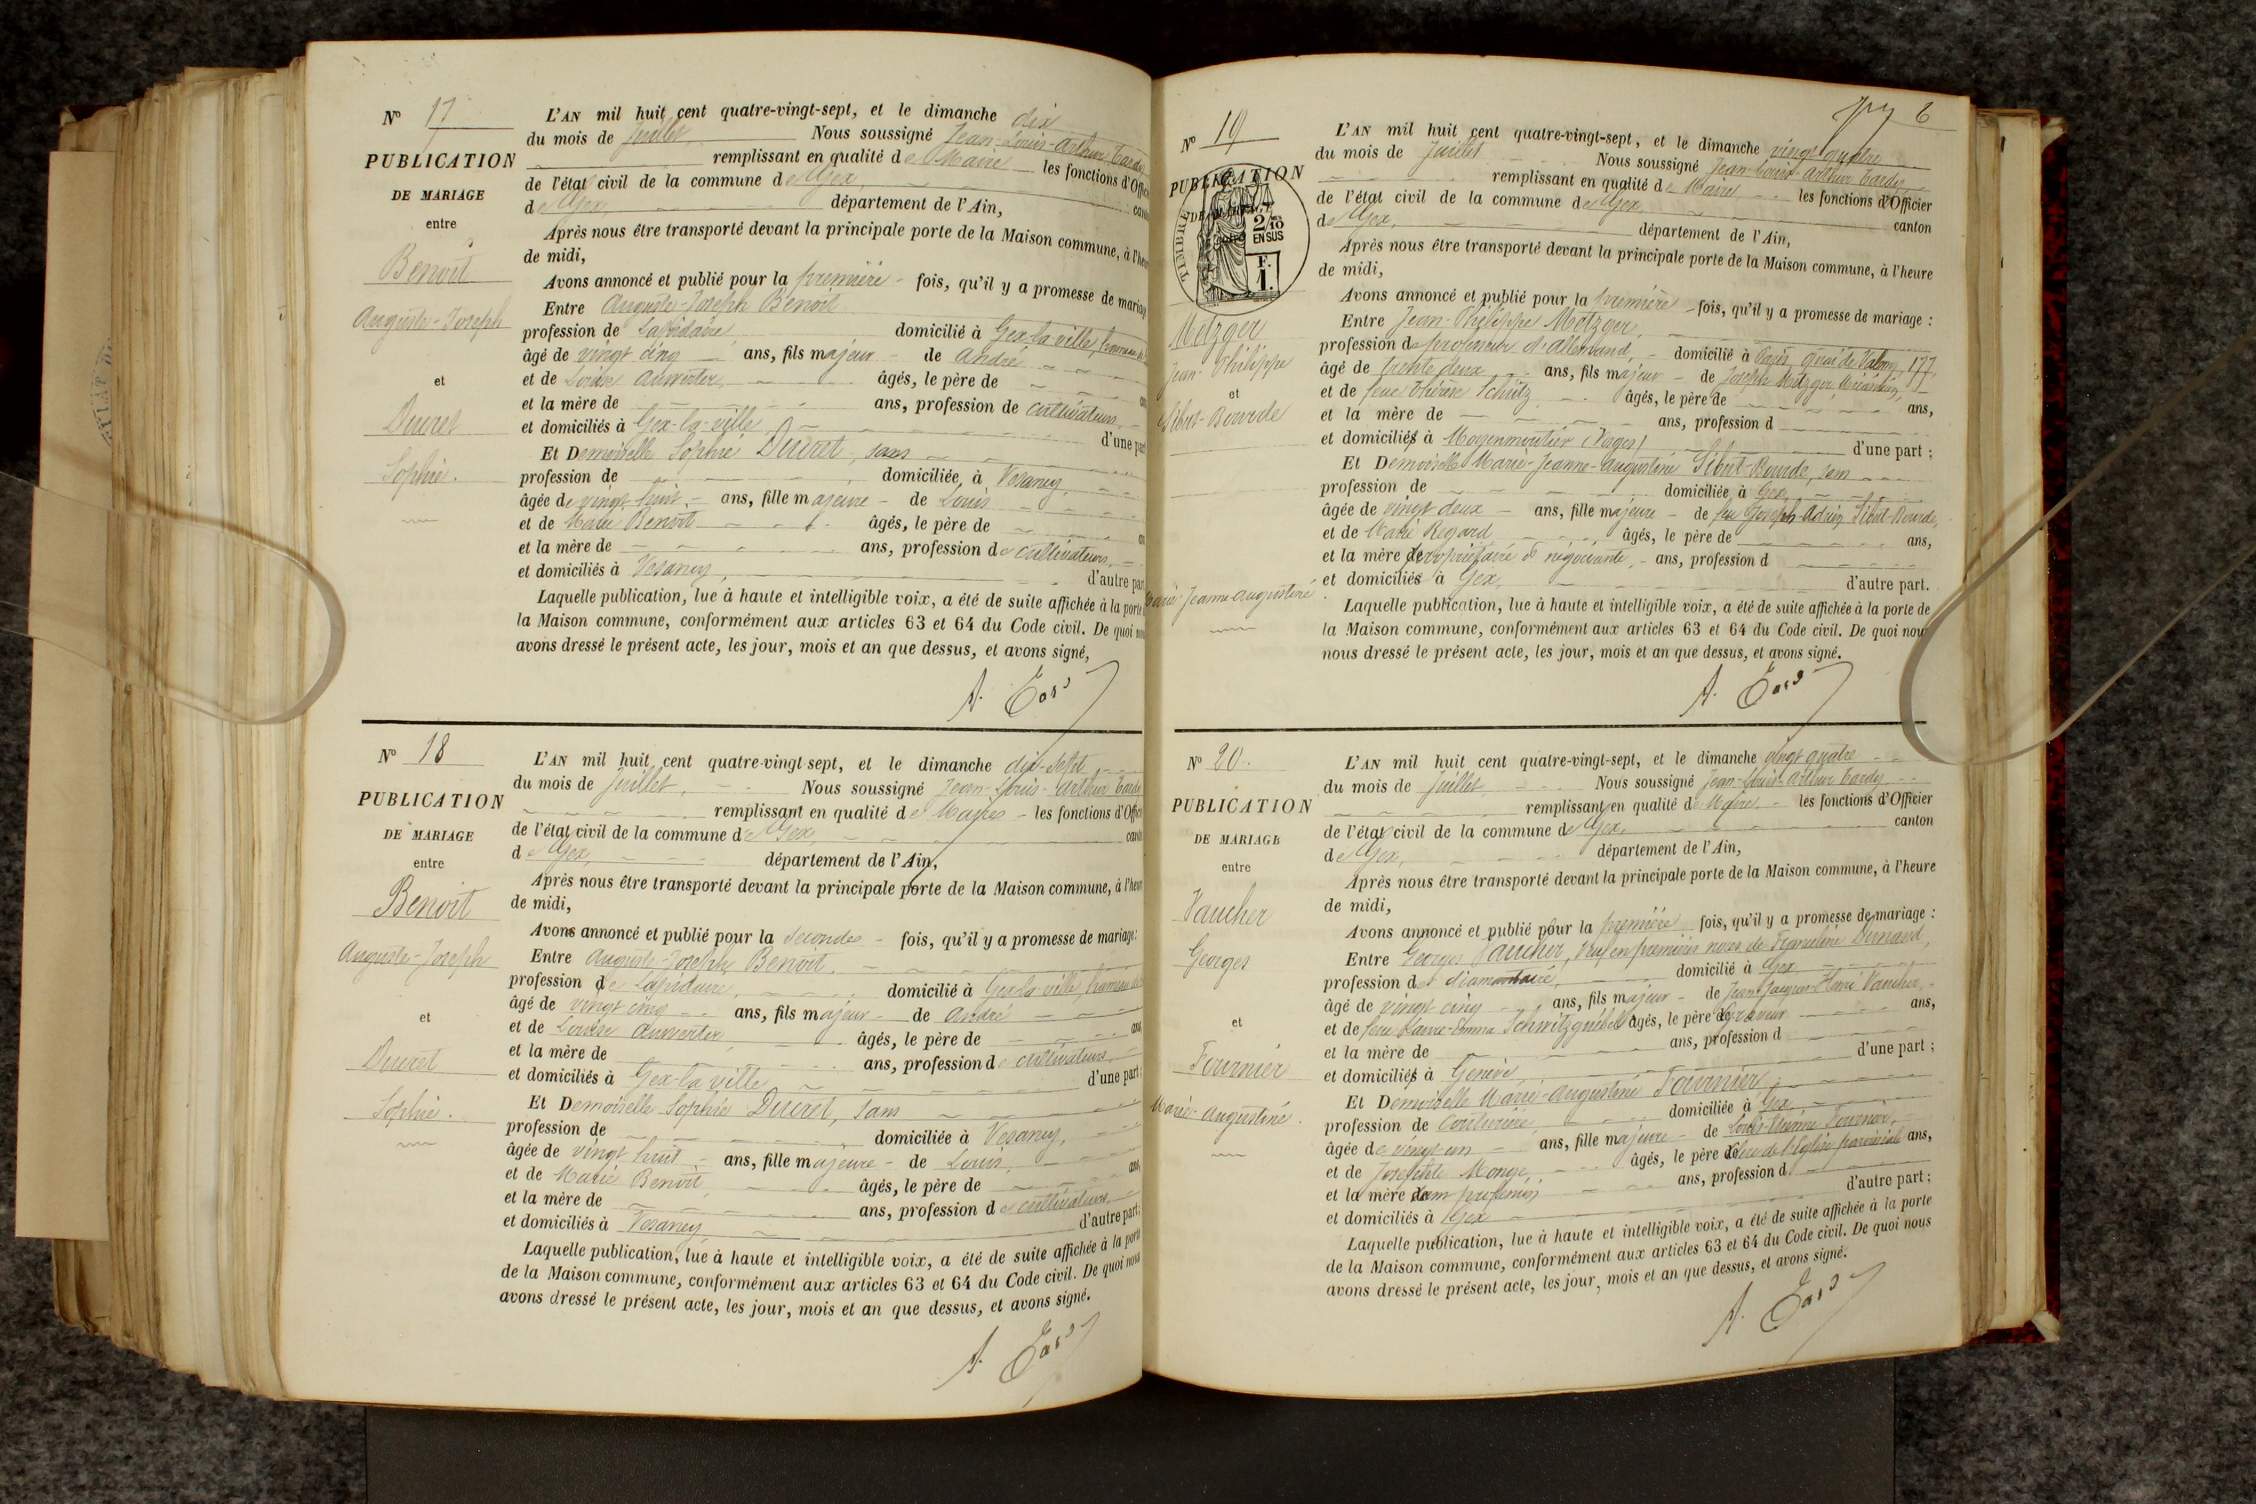 N° 17
PUBLICATION
DE MARIAGE
entre
Benoit
Auguste-Joseph
et
Ducret
Sophie.
L'AN mil huit cent quatre-vingt-sept, et le dimanche dix
du mois de Juillet, Nous soussigné Jean-Louis-Arthur Tardy
remplissant en qualité de Maire les fonctions d'Offic
de l'état civil de la commune de Gex, canto
de Gex, département de l'Ain,
Après nous être transporté devant la principale porte de la Maison commune, à l'heu
de midi,
Avons annoncé et publié pour la première fois, qu'il y a promesse de mariag
Entre Auguste-Joseph Benoit
profession de Lapidaire domicilié à Gex-la-ville, hameau de
âgé de vingt cinq ans, fils majeur de André
et de Louise âgés, le père de
et la mère de ans, profession de cultivateurs
et domiciliés à Gex-la-ville d'une part
Et Demoiselle Sophie Ducret, sans
profession de domiciliée à Vesancy,
âgée de vingt-huit ans, fille majeure de Louis
et de Marie Benoit âgés, le père de
et la mère de ans, profession de cultivateurs,
et domiciliés à Vesancy, d'autre par
Laquelle publication, lue à haute et intelligible voix, a été de suite affichée à la porte
la Maison commune, conformément aux articles 63 et 64 du Code civil. De quoi no
avons dressé le présent acte, les jour, mois et an que dessus, et avons signé,
A. Tardy
N° 18
PUBLICATION
DE MARIAGE
entre
Benoit
Auguste-Joseph
et
Ducret
Sophie.
L'AN mil huit cent quatre-vingt sept, et le dimanche dix-sept
du mois de Juillet, Nous soussigné Jean-Louis-Arthur Tardy
remplissant en qualité de Maire les fonctions d'Offic
de l'état civil de la commune de Gex, canto
de Gex, département de l'Ain,
Après nous être transporté devant la principale porte de la Maison commune, à l'heur
de midi,
Avons annoncé et publié pour la seconde fois, qu'il y a promesse de mariage:
Entre Auguste-Joseph Benoit
profession de Lapidaire, domicilié à Gex-la-ville, hameau de
âgé de vingt cinq ans, fils majeur de André
et de Louise âgés, le père de ans
et la mère de ans, profession de cultivateurs
et domiciliés à Gex-la ville d'une part;
Et Demoiselle Sophie Ducret, sans
profession de domiciliée à Vesancy,
âgée de vingt huit ans, fille majeure de Louis,
et de Marie Benoit, âgés, le père de ans,
et la mère de ans, profession de cultivateurs
et domiciliés à Vesancy d'autre part;
Laquelle publication, lue à haute et intelligible voix, a été de suite affichée à la porte
de la Maison commune, conformément aux articles 63 et 64 du Code civil. De quoi nous
avons dressé le présent acte, les jour, mois et an que dessus, et avons signé.
A. Tardy
6
N° 19
PUBLICATION
DE MARIAGE
TIMBRE
2/10
EN SUS
F.
1.
Metzger
Jean-Philippe
et
Sibut-Bourde
Marie-Jeanne-Augustine
L'AN mil huit cent quatre-vingt-sept, et le dimanche vingt quatre
du mois de Juillet Nous soussigné Jean-Louis-Arthur Tardy,
remplissant en qualité de Maire les fonctions d'Officier
de l'état civil de la commune de Gex canton
de Gex, département de l'Ain,
Après nous être transporté devant la principale porte de la Maison commune, à l'heure
de midi,
Avons annoncé et publié pour la première fois, qu'il y a promesse de mariage :
Entre Jean-Philippe Metzger,
profession de professeur d'allemand, domicilié à Paris, quai de Valmy, 177,
âgé de trente deux ans, fils majeur de Joseph Metzger,
et de feue Thérèse Schütz âgés, le père de ans,
et la mère de ans, profession d
et domiciliés à Moyenmoutier (Vosges) d'une part ;
Et Demoiselle Marie-Jeanne-Augustine Sibut-Bourde, sans
profession de domiciliée à Gex,
âgée de vingt deux ans, fille majeure de feu Joseph-Adrien Sibut-Bourde,
et de Marie Regard âgés, le père de ans,
et la mère de propriétaire et négociante, ans, profession d
et domiciliés à Gex, d'autre part.
Laquelle publication, lue à haute et intelligible voix, a été de suite affichée à la porte de
la Maison commune, conformément aux articles 63 et 64 du Code civil. De quoi nou
nous dressé le présent acte, les jour, mois et an que dessus, et avons signé.
A. Tardy
N° 20.
PUBLICATION
DE MARIAGE
entre
Vaucher
Georges
et
Fournier
Marie-Augustine.
L'AN mil huit cent quatre-vingt-sept, et le dimanche vingt quatre
du mois de Juillet, Nous soussigné Jean-Louis-Arthur Tardy
remplissant en qualité de Maire les fonctions d'Officier
de l'état civil de la commune de Gex, canton
de Gex, département de l'Ain,
Après nous être transporté devant la principale porte de la Maison commune, à l'heure
de midi,
Avons annoncé et publié pour la première fois, qu'il y a promesse de mariage :
Entre Georges Vaucher, veuf en premières noces de Françoise Durnand,
profession de diamantaire, domicilié à Gex
âgé de vingt cinq ans, fils majeur de Jean-Jacques-Henri Vaucher,
et de feue Emma Schwitzguébel âgés, le père de graveur ans,
et la mère de ans, profession d
et domiciliés à Genève d'une part ;
Et Demoiselle Marie-Augustine Fournier,
profession de couturière domiciliée à Gex
âgée de vingt un ans, fille majeure de Louis-Etienne Fournier,
et de Josephte Monge, âgés, le père de l'Eglise paroissiale ans,
et la mère sans profession, ans, profession d
et domiciliés à Gex d'autre part ;
Laquelle publication, lue à haute et intelligible voix, a été de suite affichée à la porte
de la Maison commune, conformément aux articles 63 et 64 du Code civil. De quoi nous
avons dressé le présent acte, les jour, mois et an que dessus, et avons signé.
A. Tardy